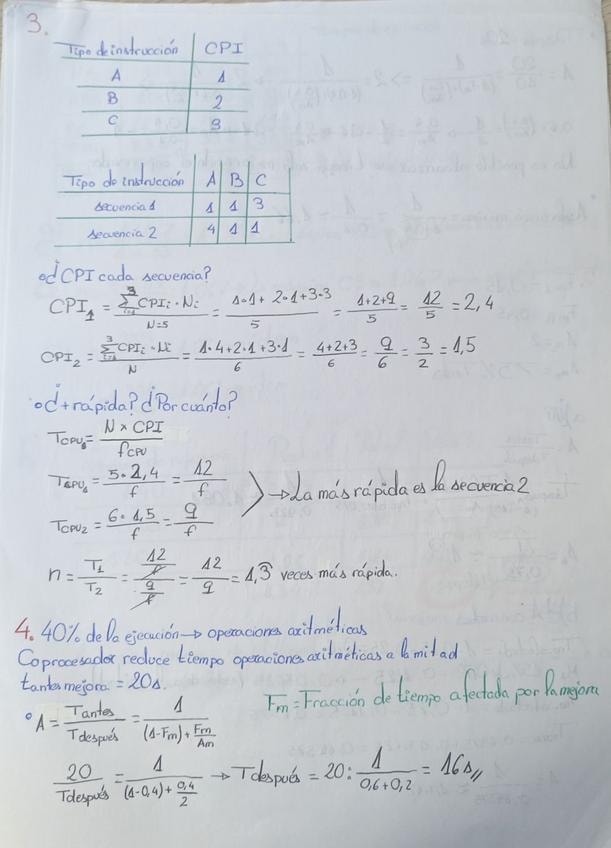 3.
Tipo de instrucción CPI
A 1
B 2
C 3
Tipo de instrucción A B C
secuencia 1 1 1 3
secuencia 2 4 1 1
¿CPI cada secuencia?
CPI₁ = ∑³ᵢ₌₁ CPIᵢ · Nᵢ / N=5 = 1·1 + 2·1 + 3·3 / 5 = 1+2+9 / 5 = 12/5 = 2,4
CPI₂ = ∑³ᵢ₌₁ CPIᵢ · Nᵢ / N = 1·4+2·1+3·1 / 6 = 4+2+3 / 6 = 9/6 = 3/2 = 1,5
¿+ rápida? ¿Por cuánto?
T_CPU₁ = N × CPI / f_CPU
T_CPU₁ = 5·2,4 / f = 12/f
→ La más rápida es la secuencia 2
T_CPU₂ = 6·1,5 / f = 9/f
n = T₁/T₂ = (12/f) / (9/f) = 12/9 = 1,3̂ veces más rápida.
4. 40% de la ejecución → operaciones aritméticas
Coprocesador reduce tiempo operaciones aritméticas a la mitad
tantes mejora = 20s.
Fm = Fracción de tiempo afectada por la mejora
A = Tantes / Tdespués = 1 / ((1-Fm) + Fm/Am)
20 / Tdespués = 1 / ((1-0,4) + 0,4/2) → Tdespués = 20 : 1 / (0,6+0,2) = 16s